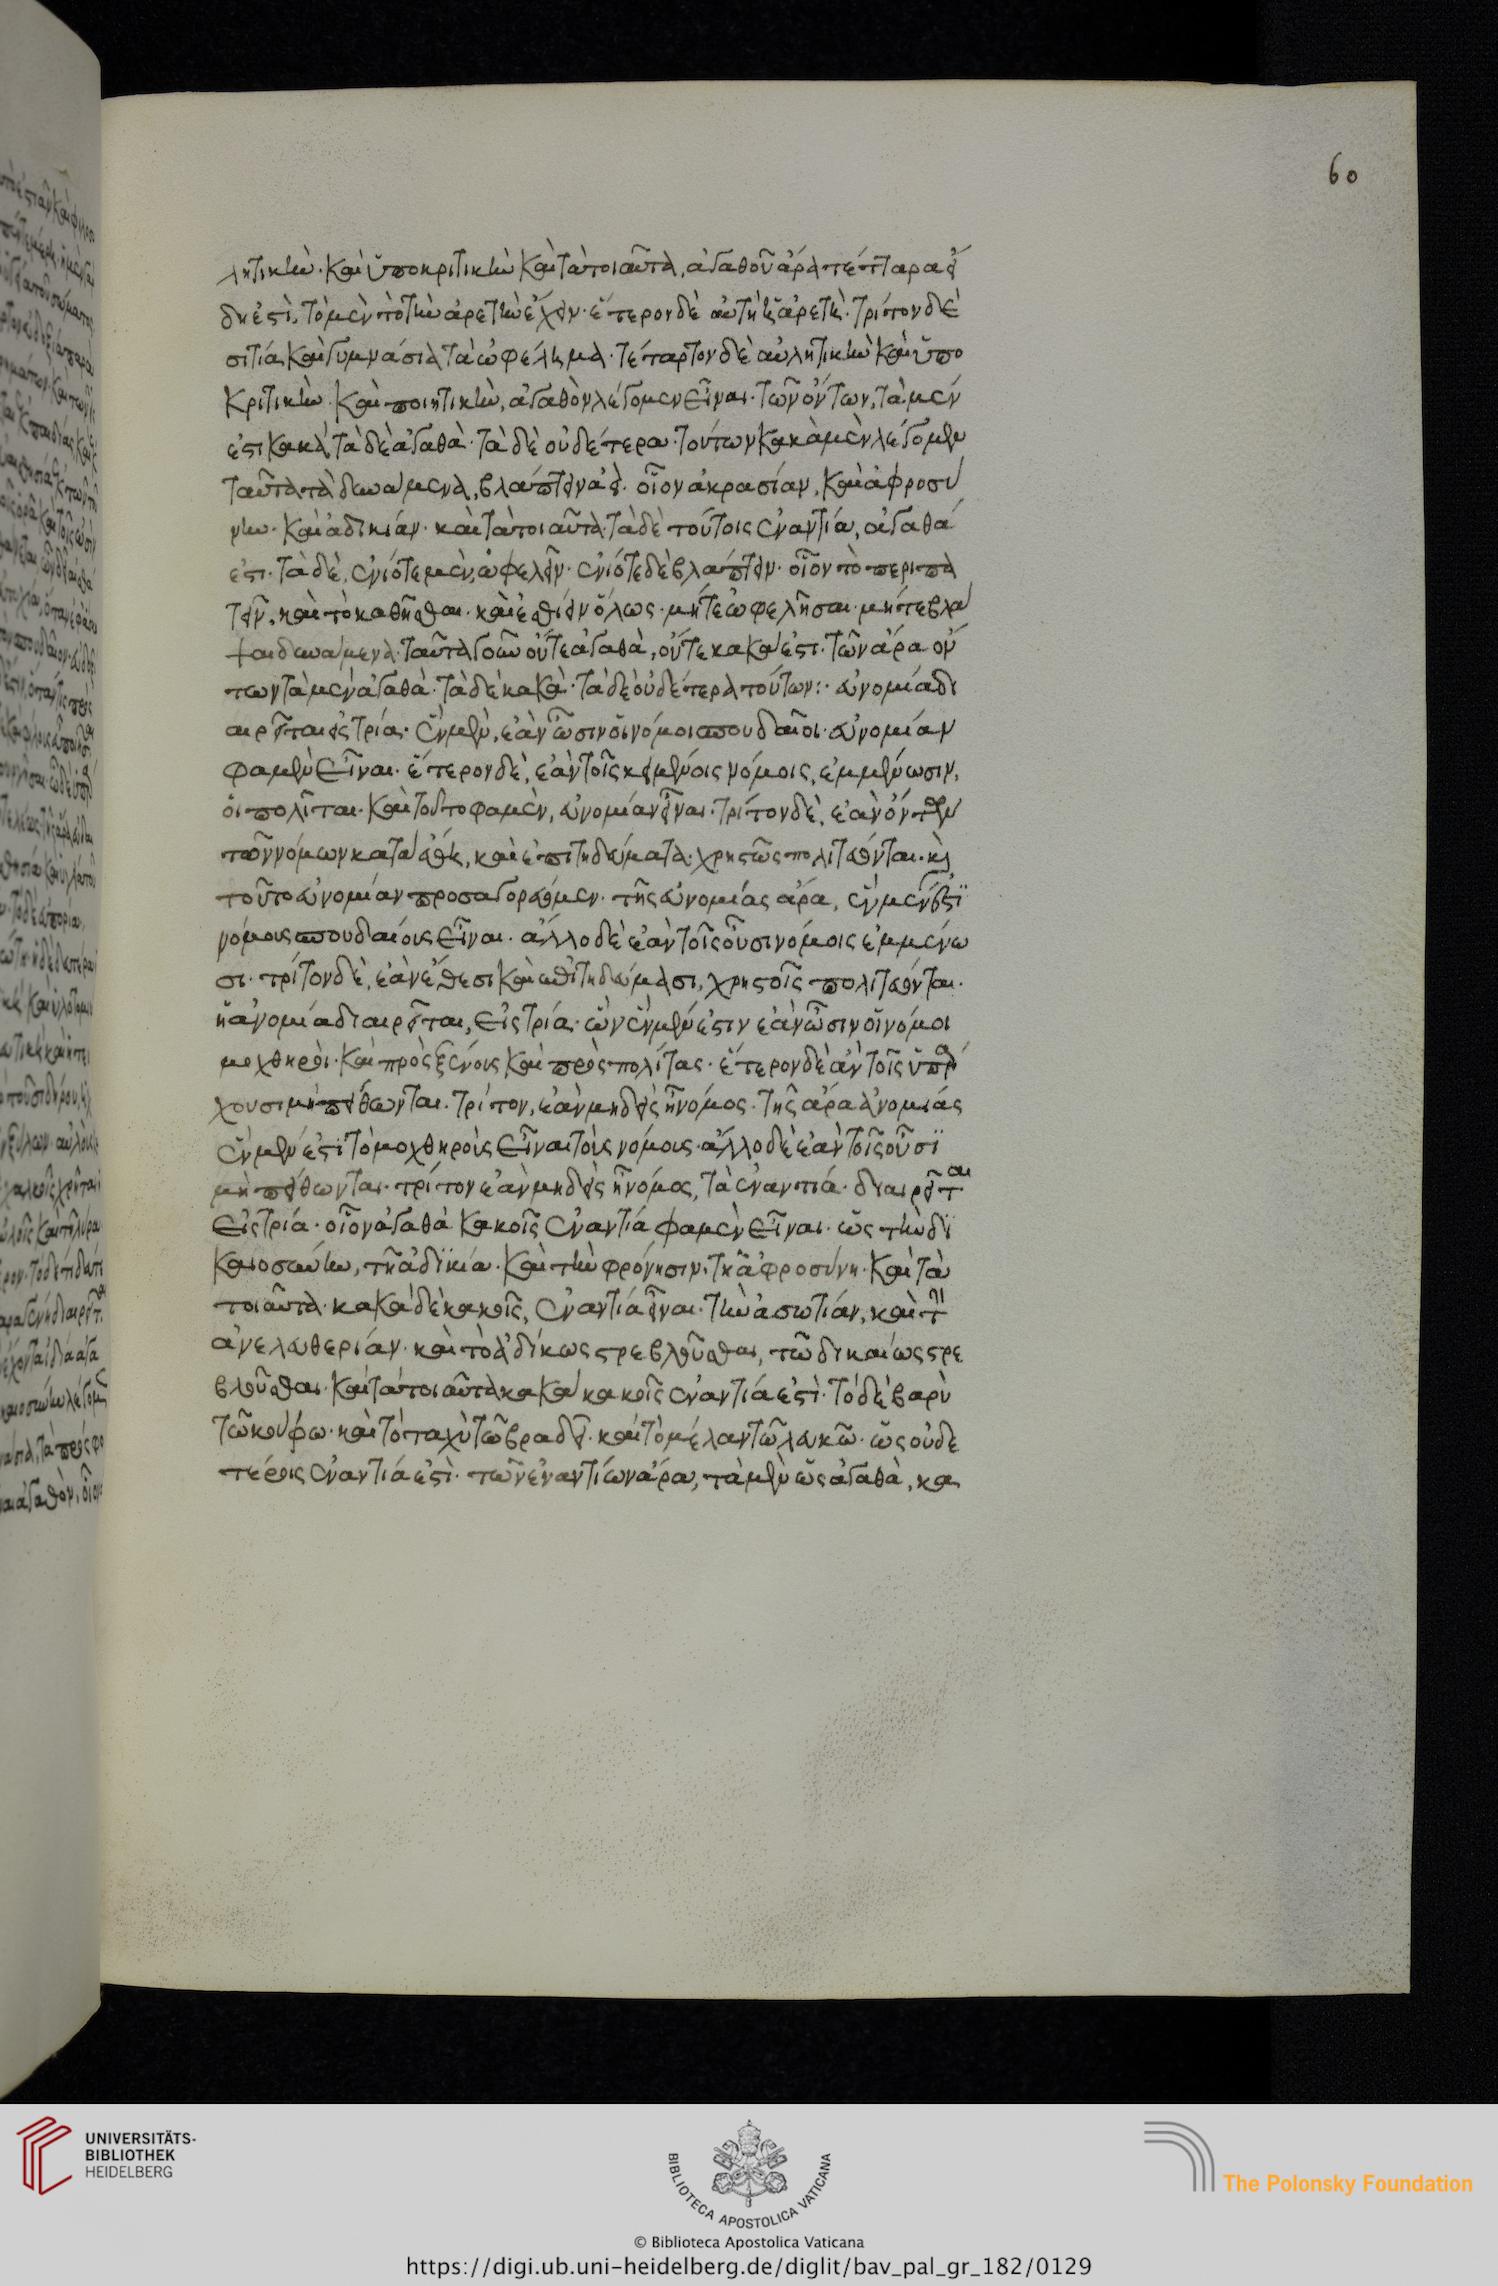 60
λητικὴν· καὶ ὑποκριτικὴν καὶ τὰ τοιαῦτα, ἀγαθοῦ ἄρα τέτταρα εἴ
δη ἐστὶ, τὸ μὲν τὸ τὴν ἀρετὴν ἔχειν· ἕτερον δὲ αὐτὴ ἡ ἀρετὴ· τρίτον δὲ
σιτία καὶ γυμνάσια τὰ ὠφέλιμα· τέταρτον δὲ αὐλητικὴν καὶ ὑπο
κριτικὴν· καὶ ποιητικὴν, ἀγαθὸν λέγομεν εἶναι· τῶν ὄντων, τὰ μέν
ἐστι κακά, τὰ δὲ ἀγαθὰ· τὰ δὲ οὐδέτερα· τούτων κακὰ μὲν λέγομεν
ταῦτα τὰ δυνάμενα, βλάπτειν ἀεὶ· οἷον ἀκρασίαν, καὶ ἀφροσύ
νην· καὶ ἀδικίαν· καὶ τὰ τοιαῦτα· τὰ δὲ τούτοις ἐναντία, ἀγαθά
ἐστι· τὰ δὲ, ἐνιότε μὲν, ὠφελεῖν· ἐνιότε δὲ βλάπτειν· οἷον τὸ περιπα
τεῖν, καὶ τὸ καθῆσθαι· καὶ ἐσθίειν ὅλως· μήτε ὠφελῆσαι· μήτε βλά
ψαι δυνάμενα· ταῦτα γοῦν οὔτε ἀγαθὰ, οὔτε κακά ἐστι· τῶν ἄρα ὄν
των τὰ μὲν ἀγαθὰ· τὰ δὲ κακὰ· τὰ δὲ οὐδέτερα τούτων:· εὐνομία δι
αιρεῖται εἰς τρία· ἓν μὲν, ἐὰν ὦσιν οἱ νόμοι σπουδαῖοι· εὐνομίαν
φαμὲν εἶναι· ἕτερον δὲ, ἐὰν τοῖς κειμένοις νόμοις, ἐμμένωσιν,
οἱ πολῖται· καὶ τοῦτο φαμὲν, εὐνομίαν εἶναι· τρίτον δὲ, ἐὰν ὄντων
τῶν νόμων κατὰ ἔθη, καὶ ἐπιτηδεύματα· χρηστῶς πολιτεύονται· καὶ
τοῦτο εὐνομίαν προσαγορεύομεν· τῆς εὐνομίας ἄρα, ἓν μέν ἐστι
νόμοις σπουδαίοις εἶναι· ἄλλο δὲ ἐὰν τοῖς οὖσι νόμοις ἐμμένω
σι· τρίτον δὲ, ἐὰν ἔθεσι καὶ ἐπιτηδεύμασι, χρηστοῖς πολιτεύονται·
ἡ ἀνομία διαιρεῖται, εἰς τρία· ὧν ἓν μέν ἐστιν ἐὰν ὦσιν οἱ νόμοι
μοχθηροὶ· καὶ πρὸς ξένους καὶ πρὸς πολίτας· ἕτερον δὲ ἂν τοῖς ὑπάρ
χουσι μὴ πείθωνται· τρίτον, ἐὰν μηδεὶς ᾖ νόμος· τῆς ἄρα ἀνομίας
ἓν μέν ἐστι τὸ μοχθηροὺς εἶναι τοὺς νόμους· ἄλλο δὲ ἐὰν τοῖς οὖσι
μὴ πείθωνται· τρίτον ἐὰν μηδεὶς ᾖ νόμος, τὰ ἐναντία· διαιρεῖται
εἰς τρία· οἷον ἀγαθὰ κακοῖς ἐναντία φαμὲν εἶναι· ὡς τὴν δι
καιοσύνην, τῆ ἀδικία· καὶ τὴν φρόνησιν, τῆ ἀφροσύνη· καὶ τὰ
τοιαῦτα· κακὰ δὲ κακοῖς, ἐναντία εἶναι· τὴν ἀσωτίαν, καὶ τὴν
ἀνελευθερίαν· καὶ τὸ ἀδίκως στρεβλοῦσθαι, τῶ δικαίως στρε
βλοῦσθαι· καὶ τὰ τοιαῦτα κακὰ κακοῖς ἐναντία ἐστὶ· τὸ δὲ βαρὺ
τῶ κούφω· καὶ τὸ ταχὺ τῶ βραδεῖ· καὶ τὸ μέλαν τῶ λευκῶ· ὡς οὐδε
τέροις ἐναντία ἐστὶ· τῶν ἐναντίων ἄρα, τὰ μὲν ὡς ἀγαθὰ, κα
UNIVERSITÄTS-
BIBLIOTHEK
HEIDELBERG
BIBLIOTECA APOSTOLICA VATICANA
The Polonsky Foundation
© Biblioteca Apostolica Vaticana
https://digi.ub.uni-heidelberg.de/diglit/bav_pal_gr_182/0129